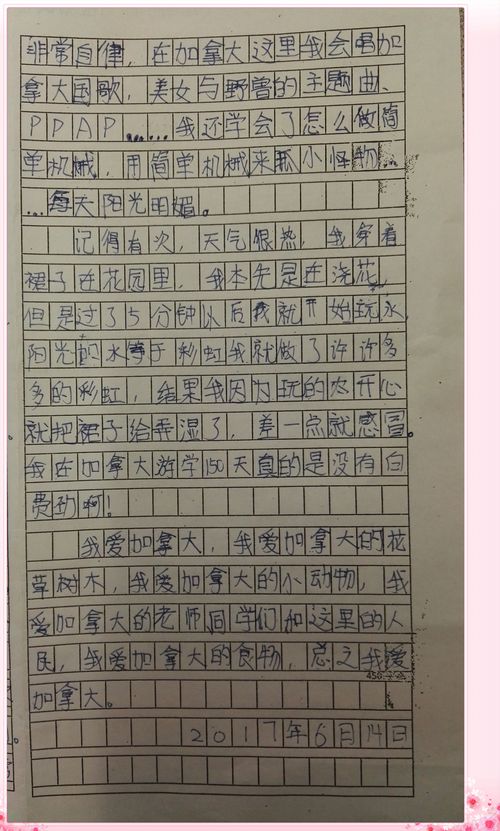 非常自律，在加拿大这里我会唱加
拿大国歌，美女与野兽的主题曲、
PPAP……我还学会了怎么做简
单机械，用简单机械来抓小怪物…
…每天阳光明媚。
记得有次，天气很热，我穿着
裙子在花园里，我本先是在浇花，
但是过了5分钟以后我就开始玩水，
阳光的水等于彩虹我就做了许许多
多的彩虹，结果我因为玩的太开心
就把裙子给弄湿了，差一点就感冒。
我在加拿大游学150天真的是没有白
费劲啊！
我爱加拿大，我爱加拿大的花
草树木，我爱加拿大的小动物，我
爱加拿大的老师同学们和这里的人
民，我爱加拿大的食物，总之我爱
加拿大。
2017年6月14日